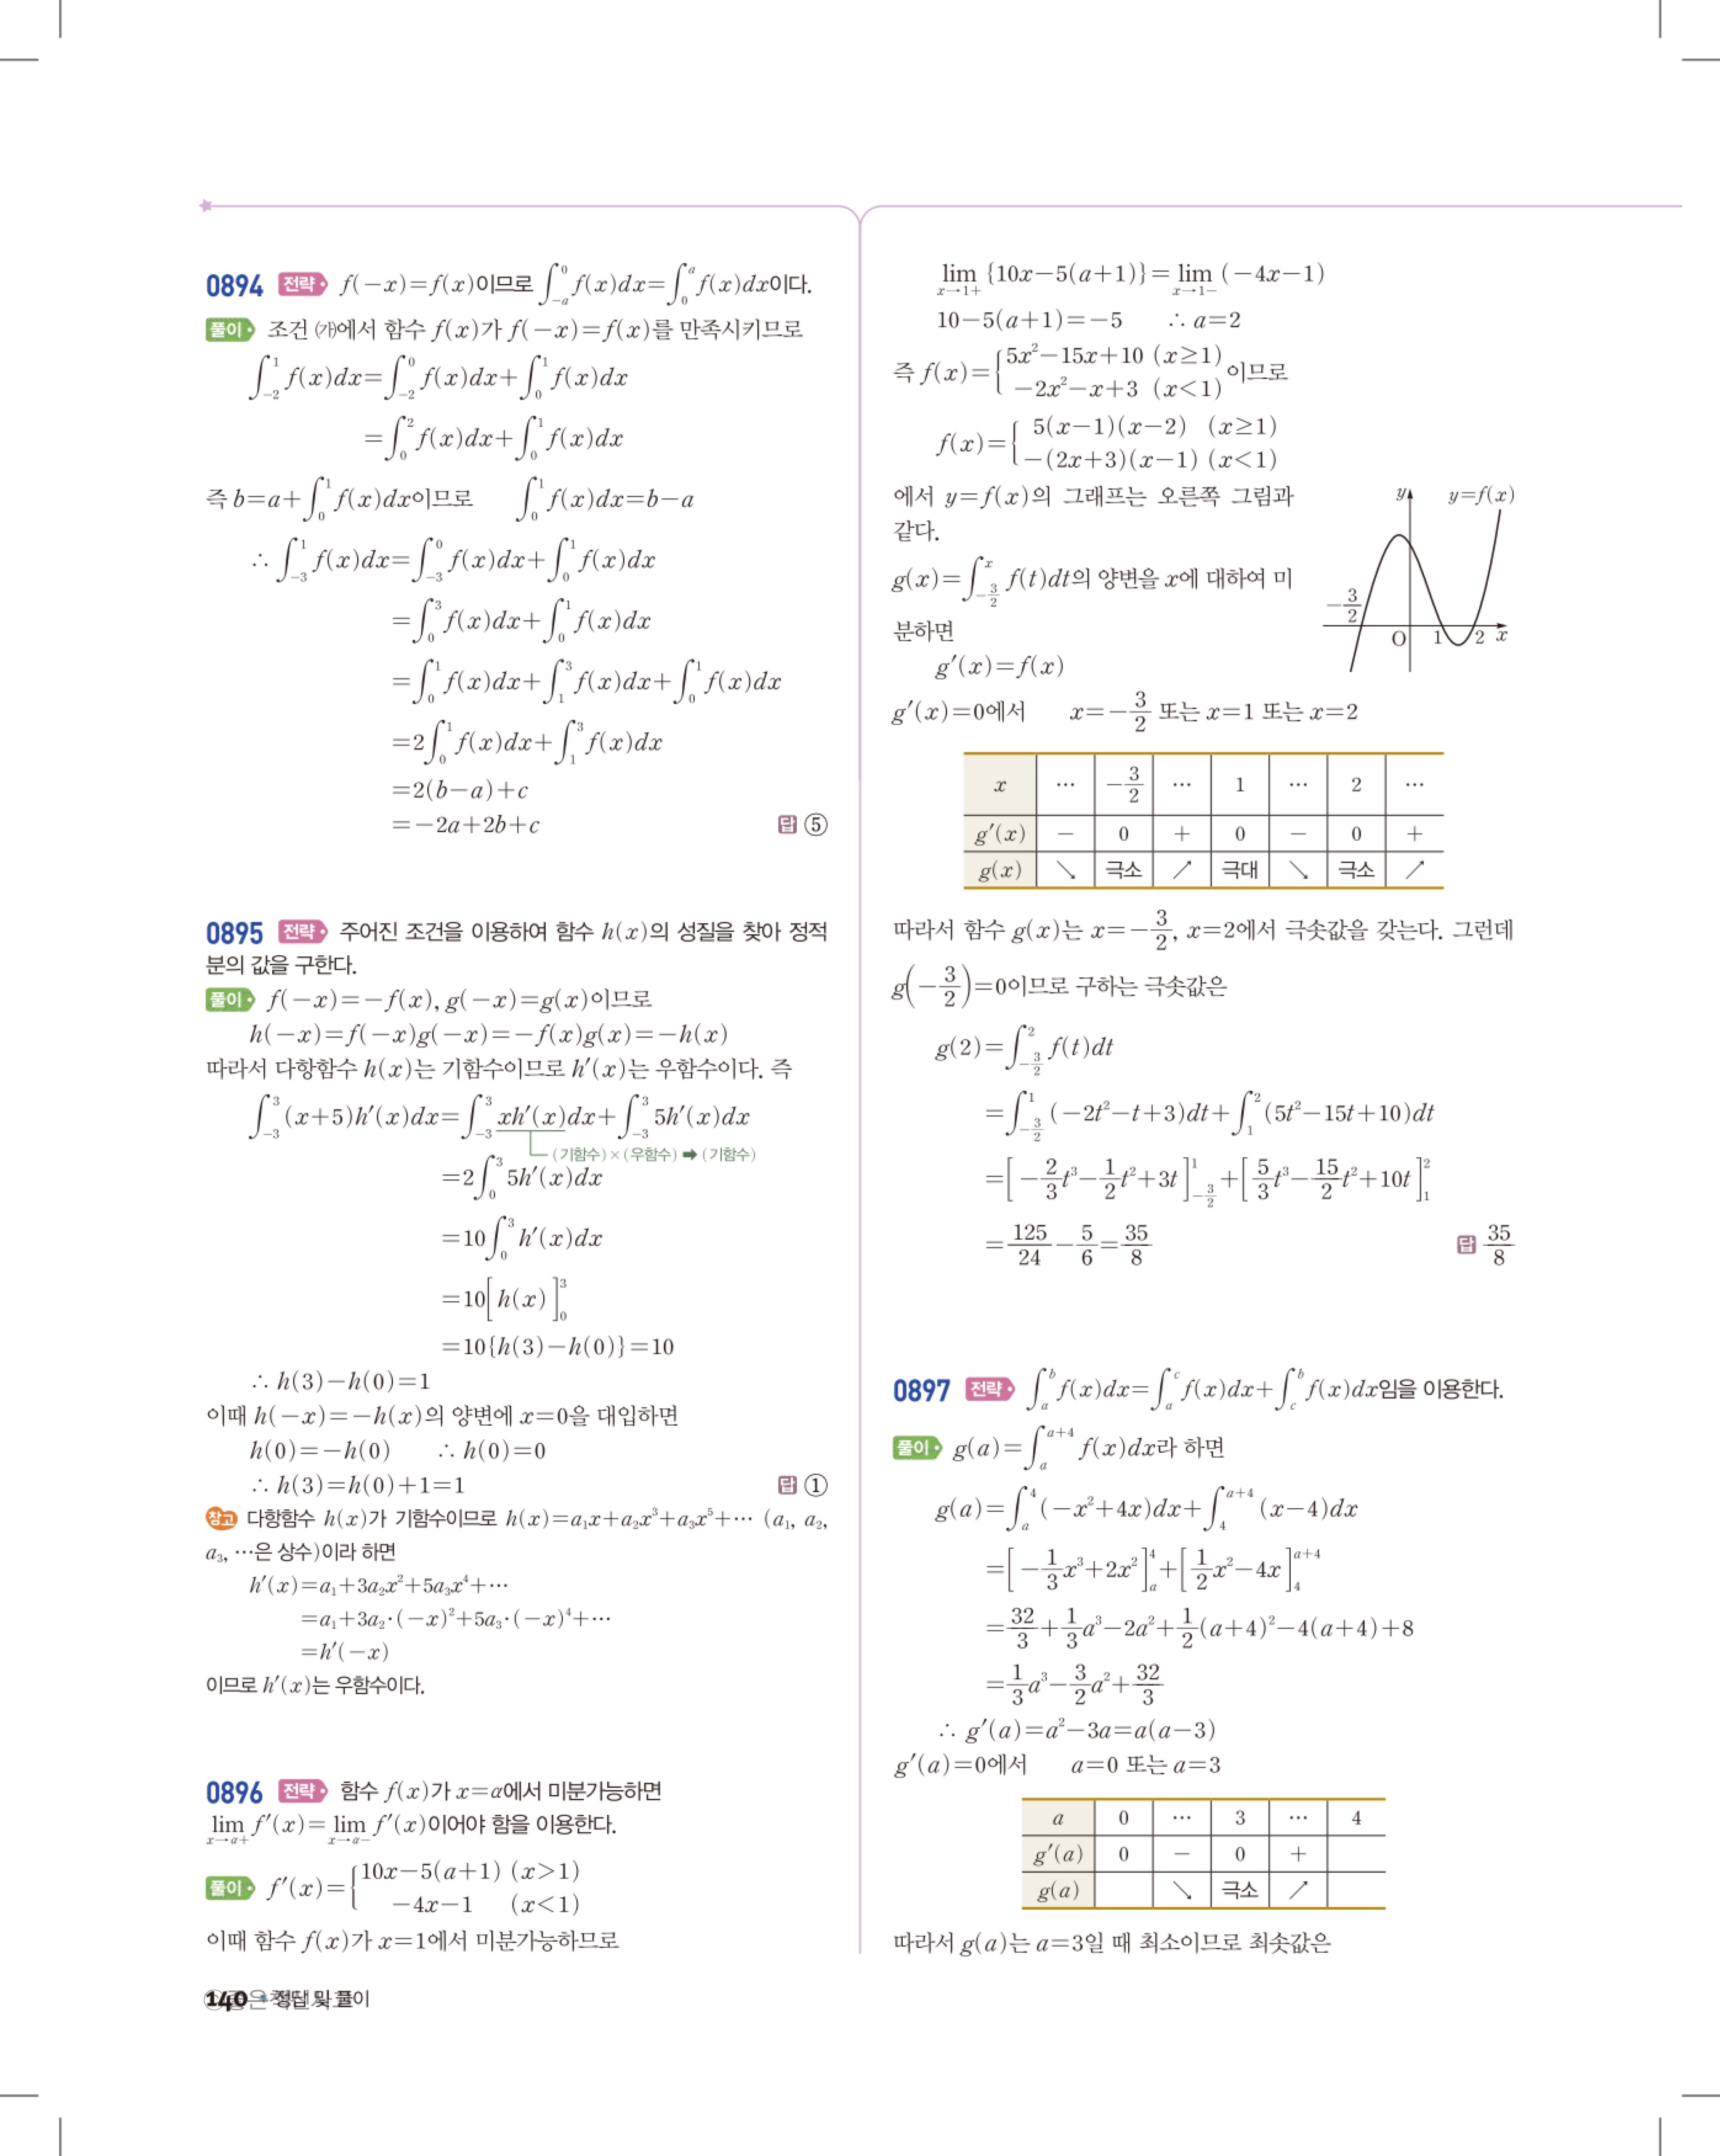 0894 전략 f(-x)=f(x)이므로 ∫_{-a}^{0} f(x)dx=∫_{0}^{a} f(x)dx이다.
풀이 조건 ㈎에서 함수 f(x)가 f(-x)=f(x)를 만족시키므로
∫_{-2}^{1} f(x)dx=∫_{-2}^{0} f(x)dx+∫_{0}^{1} f(x)dx
=∫_{0}^{2} f(x)dx+∫_{0}^{1} f(x)dx
즉 b=a+∫_{0}^{1} f(x)dx이므로 ∫_{0}^{1} f(x)dx=b-a
∴ ∫_{-3}^{1} f(x)dx=∫_{-3}^{0} f(x)dx+∫_{0}^{1} f(x)dx
=∫_{0}^{3} f(x)dx+∫_{0}^{1} f(x)dx
=∫_{0}^{1} f(x)dx+∫_{1}^{3} f(x)dx+∫_{0}^{1} f(x)dx
=2∫_{0}^{1} f(x)dx+∫_{1}^{3} f(x)dx
=2(b-a)+c
=-2a+2b+c 답 ⑤
0895 전략 주어진 조건을 이용하여 함수 h(x)의 성질을 찾아 정적
분의 값을 구한다.
풀이 f(-x)=-f(x), g(-x)=g(x)이므로
h(-x)=f(-x)g(-x)=-f(x)g(x)=-h(x)
따라서 다항함수 h(x)는 기함수이므로 h′(x)는 우함수이다. 즉
∫_{-3}^{3} (x+5)h′(x)dx=∫_{-3}^{3} xh′(x)dx+∫_{-3}^{3} 5h′(x)dx
(기함수)×(우함수) ➡ (기함수)
=2∫_{0}^{3} 5h′(x)dx
=10∫_{0}^{3} h′(x)dx
=10[h(x)]_{0}^{3}
=10{h(3)-h(0)}=10
∴ h(3)-h(0)=1
이때 h(-x)=-h(x)의 양변에 x=0을 대입하면
h(0)=-h(0) ∴ h(0)=0
∴ h(3)=h(0)+1=1 답 ①
참고 다항함수 h(x)가 기함수이므로 h(x)=a₁x+a₂x³+a₃x⁵+⋯ (a₁, a₂,
a₃, ⋯은 상수)이라 하면
h′(x)=a₁+3a₂x²+5a₃x⁴+⋯
=a₁+3a₂·(-x)²+5a₃·(-x)⁴+⋯
=h′(-x)
이므로 h′(x)는 우함수이다.
0896 전략 함수 f(x)가 x=α에서 미분가능하면
lim_{x→α+} f′(x)=lim_{x→α-} f′(x)이어야 함을 이용한다.
풀이 f′(x)={10x-5(a+1) (x>1)
-4x-1 (x<1)
이때 함수 f(x)가 x=1에서 미분가능하므로
lim_{x→1+} {10x-5(a+1)}=lim_{x→1-} (-4x-1)
10-5(a+1)=-5 ∴ a=2
즉 f(x)={5x²-15x+10 (x≥1)
-2x²-x+3 (x<1) 이므로
f(x)={5(x-1)(x-2) (x≥1)
-(2x+3)(x-1) (x<1)
에서 y=f(x)의 그래프는 오른쪽 그림과
같다.
g(x)=∫_{-3/2}^{x} f(t)dt의 양변을 x에 대하여 미
분하면
g′(x)=f(x)
y y=f(x)
-3/2 O 1 2 x
g′(x)=0에서 x=-3/2 또는 x=1 또는 x=2
x ⋯ -3/2 ⋯ 1 ⋯ 2 ⋯
g′(x) - 0 + 0 - 0 +
g(x) ↘ 극소 ↗ 극대 ↘ 극소 ↗
따라서 함수 g(x)는 x=-3/2, x=2에서 극솟값을 갖는다. 그런데
g(-3/2)=0이므로 구하는 극솟값은
g(2)=∫_{-3/2}^{2} f(t)dt
=∫_{-3/2}^{1} (-2t²-t+3)dt+∫_{1}^{2} (5t²-15t+10)dt
=[-2/3t³-1/2t²+3t]_{-3/2}^{1}+[5/3t³-15/2t²+10t]_{1}^{2}
=125/24-5/6=35/8 답 35/8
0897 전략 ∫_{a}^{b} f(x)dx=∫_{a}^{c} f(x)dx+∫_{c}^{b} f(x)dx임을 이용한다.
풀이 g(a)=∫_{a}^{a+4} f(x)dx라 하면
g(a)=∫_{a}^{4} (-x²+4x)dx+∫_{4}^{a+4} (x-4)dx
=[-1/3x³+2x²]_{a}^{4}+[1/2x²-4x]_{4}^{a+4}
=32/3+1/3a³-2a²+1/2(a+4)²-4(a+4)+8
=1/3a³-3/2a²+32/3
∴ g′(a)=a²-3a=a(a-3)
g′(a)=0에서 a=0 또는 a=3
a 0 ⋯ 3 ⋯ 4
g′(a) 0 - 0 +
g(a) ↘ 극소 ↗
따라서 g(a)는 a=3일 때 최소이므로 최솟값은
140 정답 및 풀이